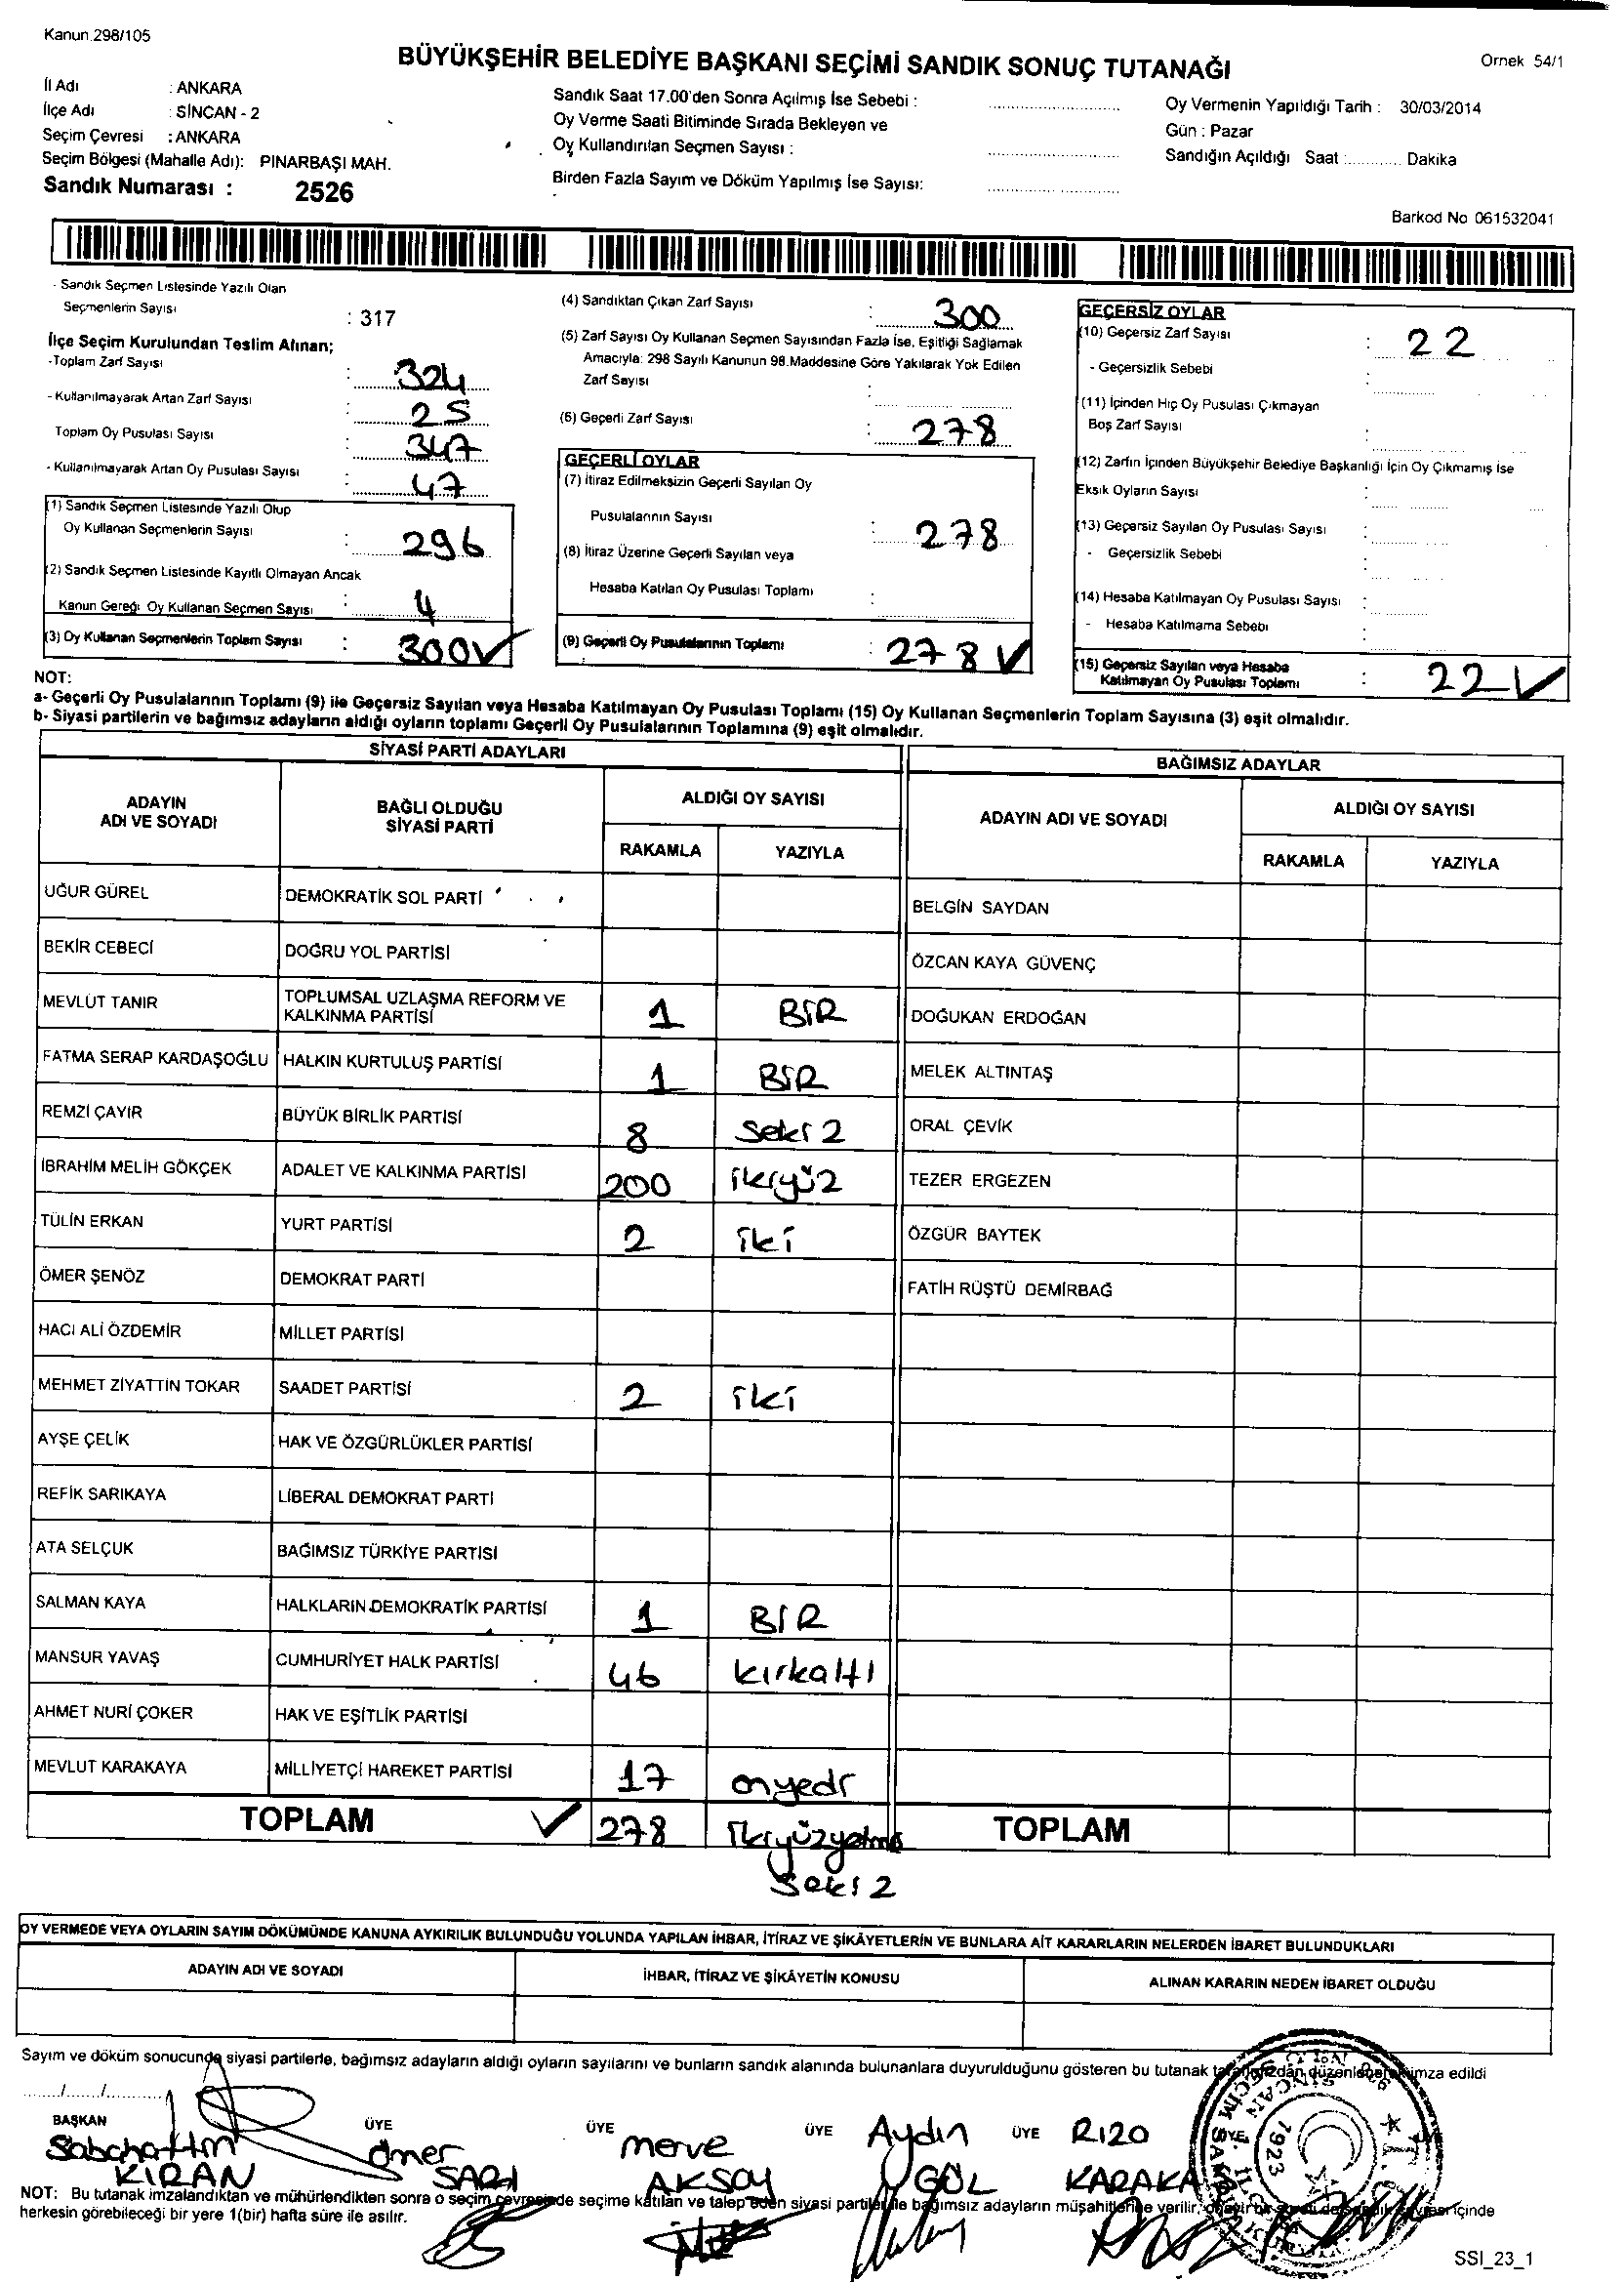 Kanun.298/105
BÜYÜKŞEHİR BELEDİYE BAŞKANI SEÇİMİ SANDIK SONUÇ TUTANAĞI
Ornek 54/1
İl Adı : ANKARA
İlçe Adı : SİNCAN - 2
Seçim Çevresi : ANKARA
Seçim Bölgesi (Mahalle Adı): PINARBAŞI MAH.
Sandık Numarası : 2526
Sandık Saat 17.00'den Sonra Açılmış İse Sebebi :
Oy Verme Saati Bitiminde Sırada Bekleyen ve
Oy Kullandırılan Seçmen Sayısı :
Birden Fazla Sayım ve Döküm Yapılmış İse Sayısı:
Oy Vermenin Yapıldığı Tarih : 30/03/2014
Gün : Pazar
Sandığın Açıldığı Saat :............ Dakika
Barkod No 061532041
- Sandık Seçmen Listesinde Yazılı Olan
Seçmenlerin Sayısı : 317
İlçe Seçim Kurulundan Teslim Alınan;
-Toplam Zarf Sayısı : 324
- Kullanılmayarak Artan Zarf Sayısı : 25
Toplam Oy Pusulası Sayısı : 347
- Kullanılmayarak Artan Oy Pusulası Sayısı : 47
(1) Sandık Seçmen Listesinde Yazılı Olup
Oy Kullanan Seçmenlerin Sayısı : 296
(2) Sandık Seçmen Listesinde Kayıtlı Olmayan Ancak
Kanun Gereği Oy Kullanan Seçmen Sayısı : 4
(3) Oy Kullanan Seçmenlerin Toplam Sayısı : 300 ✓
(4) Sandıktan Çıkan Zarf Sayısı : 300
(5) Zarf Sayısı Oy Kullanan Seçmen Sayısından Fazla İse, Eşitliği Sağlamak
Amacıyla: 298 Sayılı Kanunun 98.Maddesine Göre Yakılarak Yok Edilen
Zarf Sayısı :
(6) Geçerli Zarf Sayısı : 278
GEÇERLİ OYLAR
(7) İtiraz Edilmeksizin Geçerli Sayılan Oy
Pusulalarının Sayısı : 278
(8) İtiraz Üzerine Geçerli Sayılan veya
Hesaba Katılan Oy Pusulası Toplamı :
(9) Geçerli Oy Pusulalarının Toplamı : 278 ✓
GEÇERSİZ OYLAR
(10) Geçersiz Zarf Sayısı : 22
- Geçersizlik Sebebi :
(11) İçinden Hiç Oy Pusulası Çıkmayan
Boş Zarf Sayısı :
(12) Zarfın İçinden Büyükşehir Belediye Başkanlığı İçin Oy Çıkmamış İse
Eksik Oyların Sayısı :
(13) Geçersiz Sayılan Oy Pusulası Sayısı :
- Geçersizlik Sebebi :
(14) Hesaba Katılmayan Oy Pusulası Sayısı :
- Hesaba Katılmama Sebebi :
(15) Geçersiz Sayılan veya Hesaba
Katılmayan Oy Pusulası Toplamı : 22 ✓
NOT:
a- Geçerli Oy Pusulalarının Toplamı (9) ile Geçersiz Sayılan veya Hesaba Katılmayan Oy Pusulası Toplamı (15) Oy Kullanan Seçmenlerin Toplam Sayısına (3) eşit olmalıdır.
b- Siyasi partilerin ve bağımsız adayların aldığı oyların toplamı Geçerli Oy Pusulalarının Toplamına (9) eşit olmalıdır.
SİYASİ PARTİ ADAYLARI
ADAYIN
ADI VE SOYADI
BAĞLI OLDUĞU
SİYASİ PARTİ
ALDIĞI OY SAYISI
RAKAMLA YAZIYLA
UĞUR GÜREL DEMOKRATİK SOL PARTİ
BEKİR CEBECİ DOĞRU YOL PARTİSİ
MEVLÜT TANIR TOPLUMSAL UZLAŞMA REFORM VE
KALKINMA PARTİSİ 1 BİR
FATMA SERAP KARDAŞOĞLU HALKIN KURTULUŞ PARTİSİ 1 BİR
REMZİ ÇAYIR BÜYÜK BİRLİK PARTİSİ 8 Sekiz
İBRAHİM MELİH GÖKÇEK ADALET VE KALKINMA PARTİSİ 200 ikiyüz
TÜLİN ERKAN YURT PARTİSİ 2 iki
ÖMER ŞENÖZ DEMOKRAT PARTİ
HACI ALİ ÖZDEMİR MİLLET PARTİSİ
MEHMET ZİYATTİN TOKAR SAADET PARTİSİ 2 iki
AYŞE ÇELİK HAK VE ÖZGÜRLÜKLER PARTİSİ
REFİK SARIKAYA LİBERAL DEMOKRAT PARTİ
ATA SELÇUK BAĞIMSIZ TÜRKİYE PARTİSİ
SALMAN KAYA HALKLARIN DEMOKRATİK PARTİSİ 1 BİR
MANSUR YAVAŞ CUMHURİYET HALK PARTİSİ 46 kırkaltı
AHMET NURİ ÇOKER HAK VE EŞİTLİK PARTİSİ
MEVLUT KARAKAYA MİLLİYETÇİ HAREKET PARTİSİ 17 onyedi
TOPLAM ✓ 278 ikiyüzyetmiş
Sekiz
BAĞIMSIZ ADAYLAR
ADAYIN ADI VE SOYADI
ALDIĞI OY SAYISI
RAKAMLA YAZIYLA
BELGİN SAYDAN
ÖZCAN KAYA GÜVENÇ
DOĞUKAN ERDOĞAN
MELEK ALTINTAŞ
ORAL ÇEVİK
TEZER ERGEZEN
ÖZGÜR BAYTEK
FATİH RÜŞTÜ DEMİRBAĞ
TOPLAM
OY VERMEDE VEYA OYLARIN SAYIM DÖKÜMÜNDE KANUNA AYKIRILIK BULUNDUĞU YOLUNDA YAPILAN İHBAR, İTİRAZ VE ŞİKÂYETLERİN VE BUNLARA AİT KARARLARIN NELERDEN İBARET BULUNDUKLARI
ADAYIN ADI VE SOYADI
İHBAR, İTİRAZ VE ŞİKÂYETİN KONUSU
ALINAN KARARIN NEDEN İBARET OLDUĞU
Sayım ve döküm sonucunda siyasi partilerle, bağımsız adayların aldığı oyların sayılarını ve bunların sandık alanında bulunanlara duyurulduğunu gösteren bu tutanak tarafımızdan düzenlenerek imza edildi
....../....../......
BAŞKAN ÜYE ÜYE ÜYE ÜYE
Sabahattin KIRAN
Ömer SARI
Merve AKSOY
Aydın GÖL
RIZA
SİNCAN
NOT: Bu tutanak imzalandıktan ve mühürlendikten sonra o seçim çevresinde seçime katılan ve talep eden siyasi partiler ile bağımsız adayların müşahitlerine verilir, içinde
herkesin görebileceği bir yere 1(bir) hafta süre ile asılır.
SSI_23_1